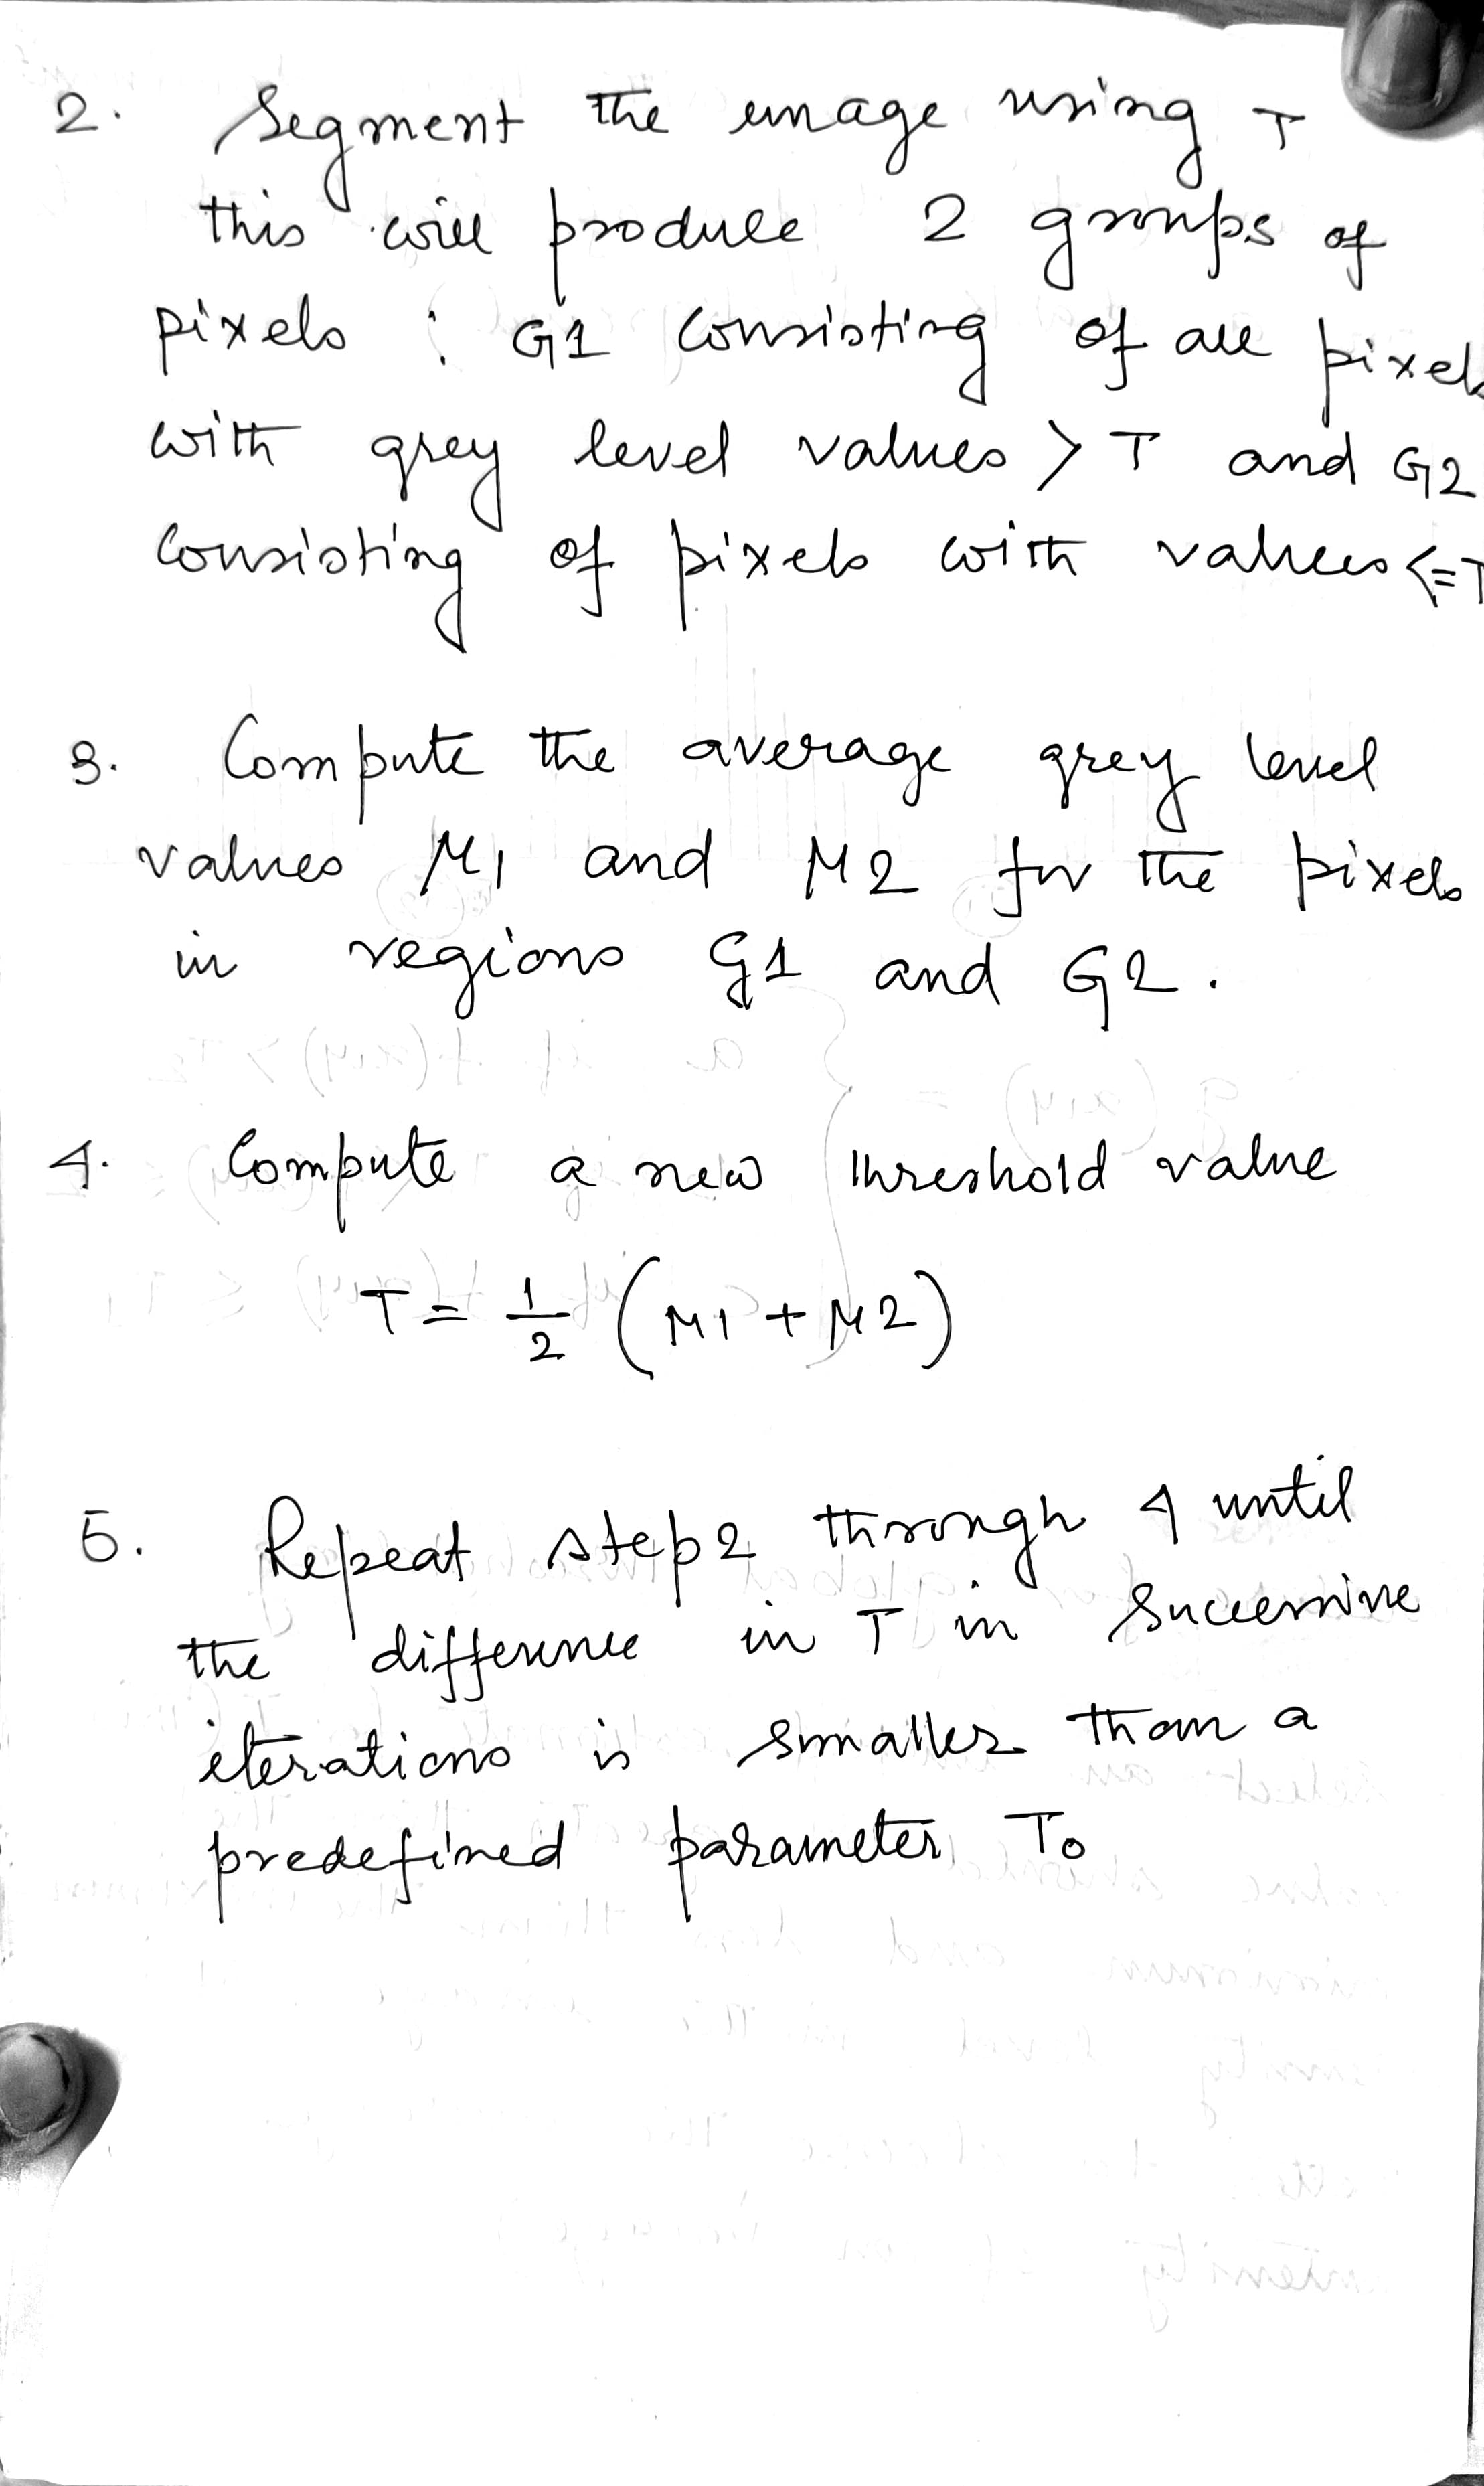 2. Segment the image using T
this will produce 2 groups of
pixels : G1 consisting of all pixels
with grey level values > T and G2
consisting of pixels with values <= T
3. Compute the average grey level
values M1 and M2 for the pixels
in regions G1 and G2.
4. Compute a new threshold value
T = 1/2 (M1 + M2)
5. Repeat step 2 through 4 until
the difference in T in successive
iterations is smaller than a
predefined parameter To